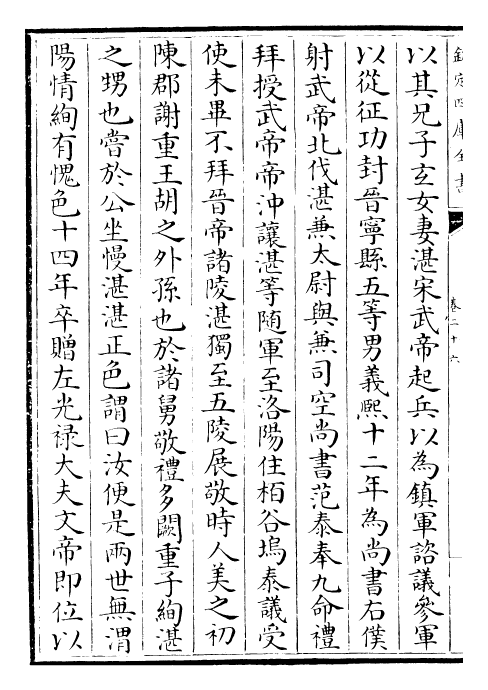 欽定四庫全書
卷二十六
以其兄子玄女妻湛宋武帝起兵以為鎮軍諮議參軍
以從征功封晉寧縣五等男義熙十二年為尚書右僕
射武帝北伐湛兼太尉與兼司空尚書范泰奉九命禮
拜授武帝帝沖讓湛等隨軍至洛陽住栢谷塢泰議受
使未畢不拜晉帝諸陵湛獨至五陵展敬時人美之初
陳郡謝重王胡之外孫也於諸舅敬禮多闕重子絢湛
之甥也嘗於公坐慢湛湛正色謂曰汝便是兩世無渭
陽情絢有愧色十四年卒贈左光禄大夫文帝即位以